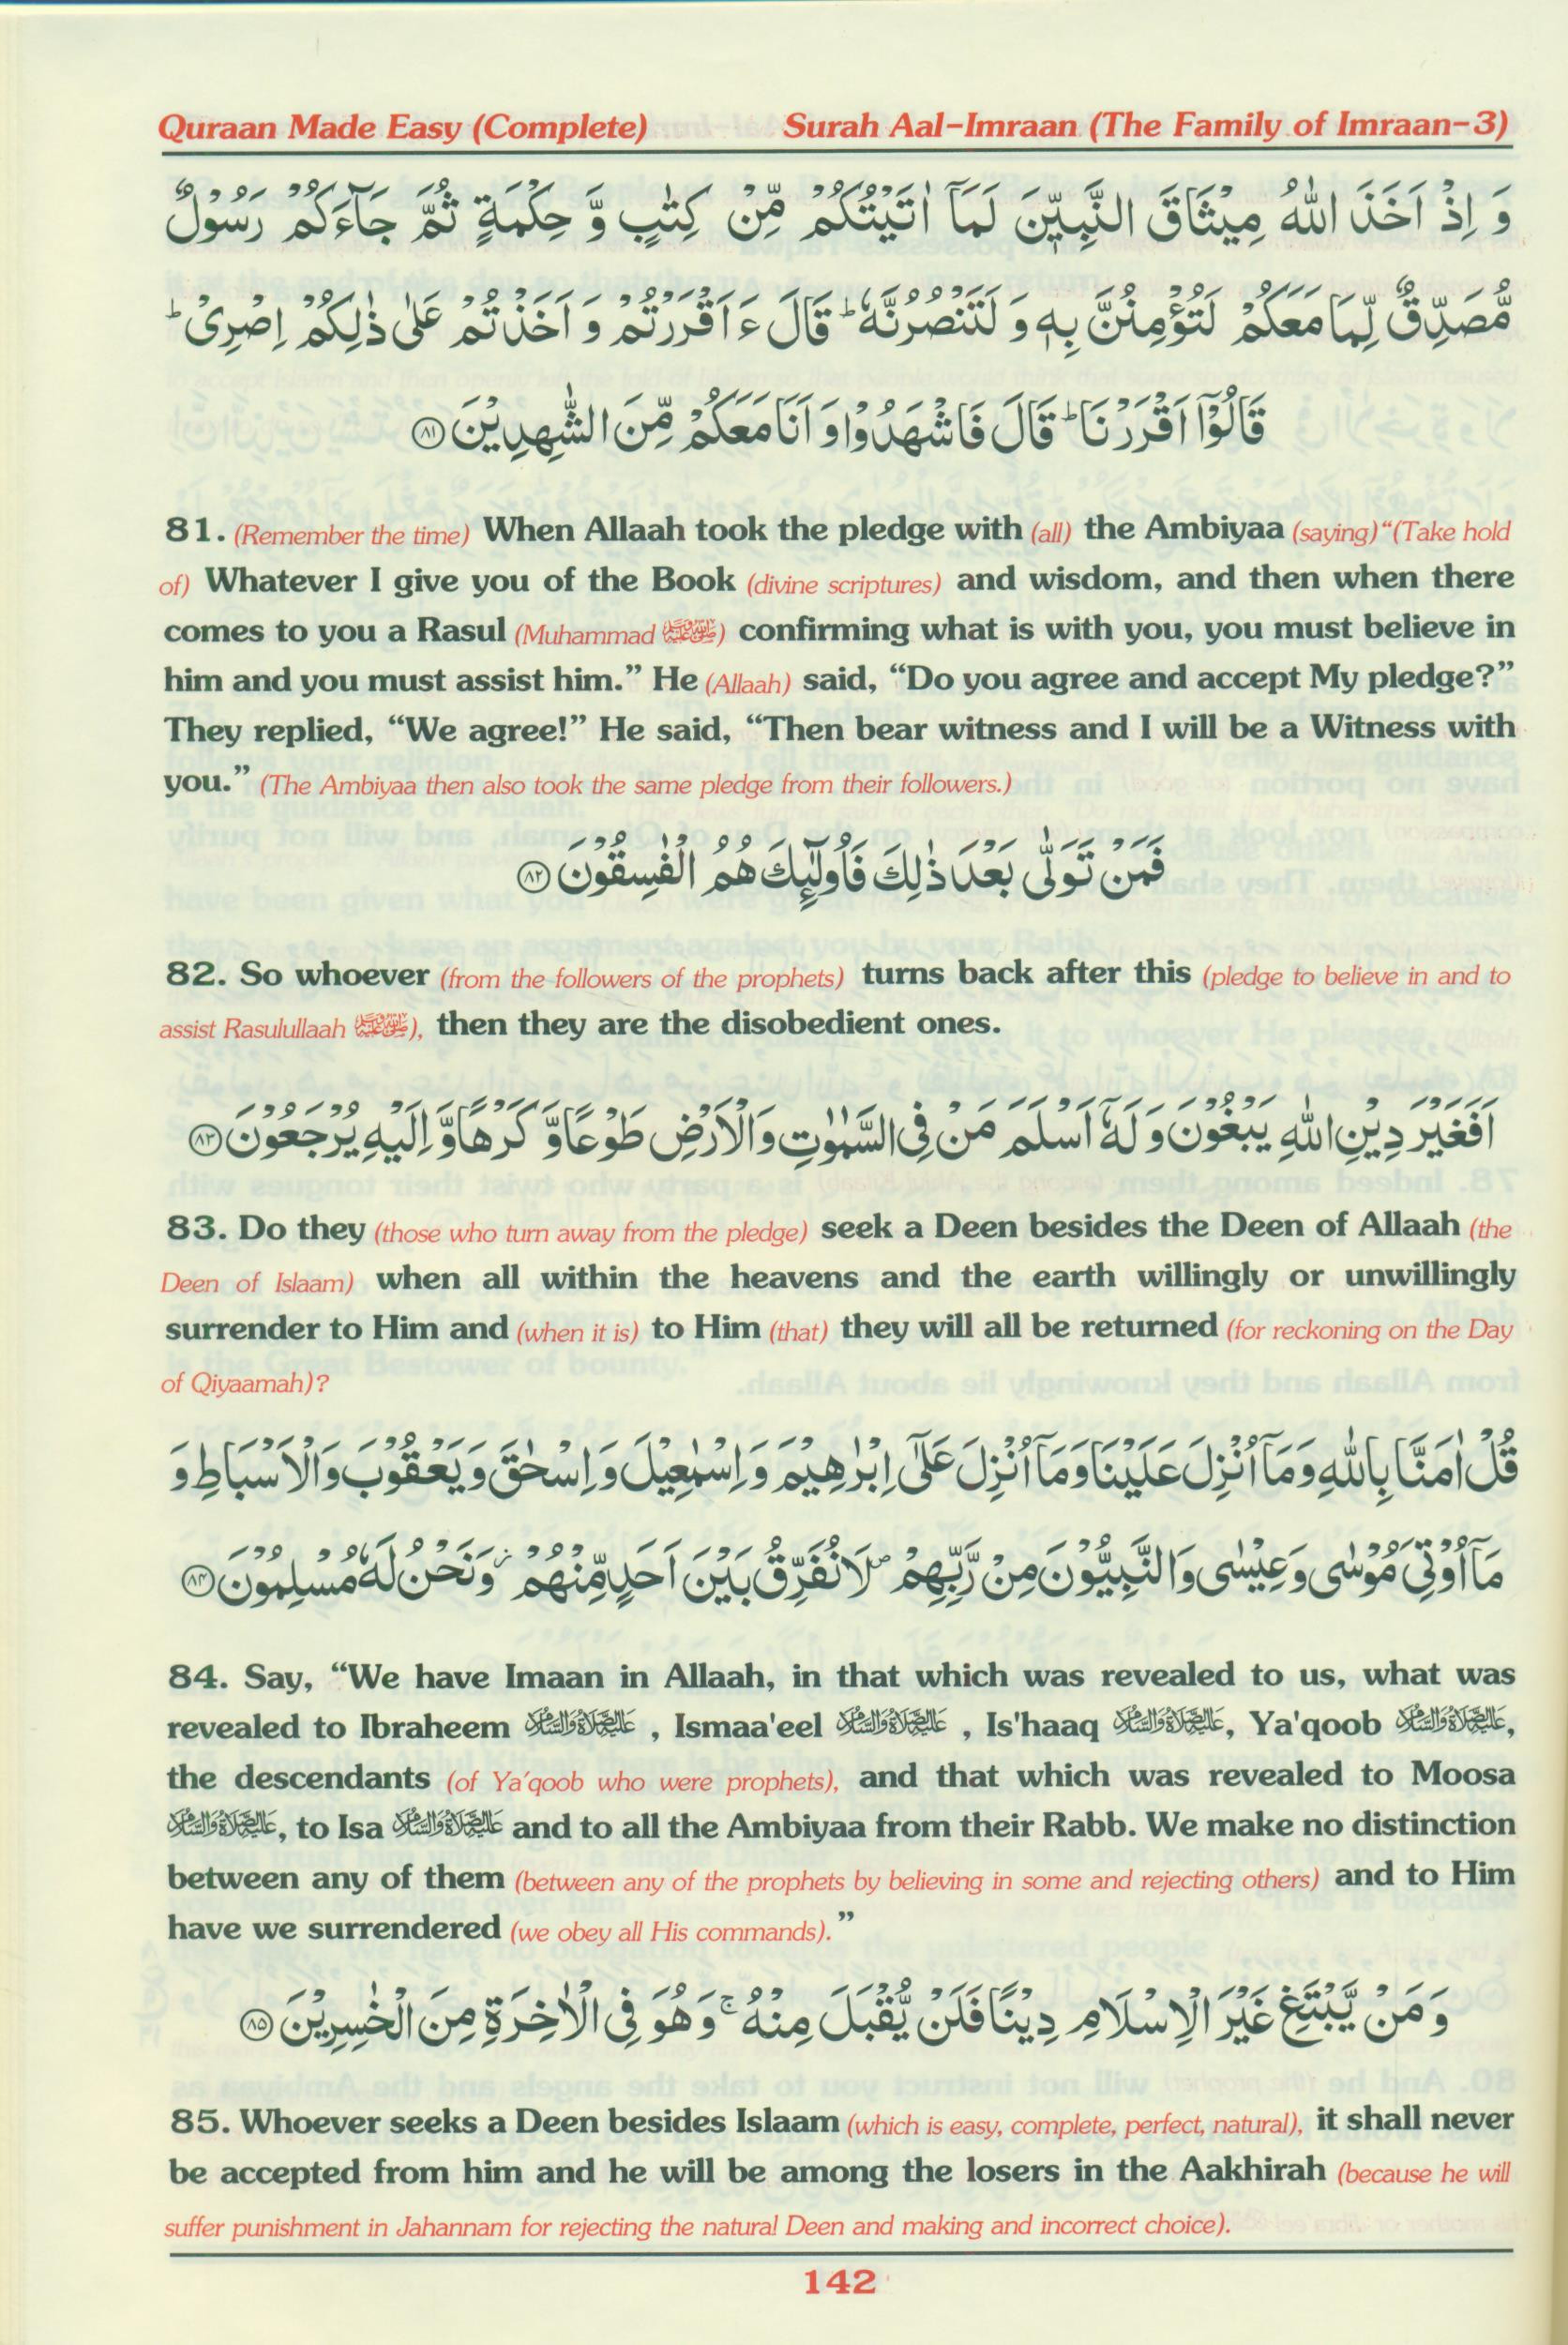 Quraan Made Easy (Complete) Surah Aal-Imraan (The Family of Imraan-3)
وَ اِذْ اَخَذَ اللّٰهُ مِيْثَاقَ النَّبِيّٖنَ لَمَاۤ اٰتَيْتُكُمْ مِّنْ كِتٰبٍ وَّ حِكْمَةٍ ثُمَّ جَآءَكُمْ رَسُوْلٌ
مُّصَدِّقٌ لِّمَا مَعَكُمْ لَتُؤْمِنُنَّ بِهٖ وَ لَتَنْصُرُنَّهٗ ؕ قَالَ ءَاَقْرَرْتُمْ وَ اَخَذْتُمْ عَلٰى ذٰلِكُمْ اِصْرِىْ ؕ
قَالُوْۤا اَقْرَرْنَا ؕ قَالَ فَاشْهَدُوْا وَ اَنَا مَعَكُمْ مِّنَ الشّٰهِدِيْنَ ۸۱
81. (Remember the time) When Allaah took the pledge with (all) the Ambiyaa (saying) “(Take hold
of) Whatever I give you of the Book (divine scriptures) and wisdom, and then when there
comes to you a Rasul (Muhammad ﷺ) confirming what is with you, you must believe in
him and you must assist him.” He (Allaah) said, “Do you agree and accept My pledge?”
They replied, “We agree!” He said, “Then bear witness and I will be a Witness with
you.” (The Ambiyaa then also took the same pledge from their followers.)
فَمَنْ تَوَلّٰى بَعْدَ ذٰلِكَ فَاُولٰٓئِكَ هُمُ الْفٰسِقُوْنَ ۸۲
82. So whoever (from the followers of the prophets) turns back after this (pledge to believe in and to
assist Rasulullaah ﷺ), then they are the disobedient ones.
اَفَغَيْرَ دِيْنِ اللّٰهِ يَبْغُوْنَ وَ لَهٗۤ اَسْلَمَ مَنْ فِى السَّمٰوٰتِ وَالْاَرْضِ طَوْعًا وَّ كَرْهًا وَّ اِلَيْهِ يُرْجَعُوْنَ ۸۳
83. Do they (those who turn away from the pledge) seek a Deen besides the Deen of Allaah (the
Deen of Islaam) when all within the heavens and the earth willingly or unwillingly
surrender to Him and (when it is) to Him (that) they will all be returned (for reckoning on the Day
of Qiyaamah)?
قُلْ اٰمَنَّا بِاللّٰهِ وَمَاۤ اُنْزِلَ عَلَيْنَا وَمَاۤ اُنْزِلَ عَلٰٓى اِبْرٰهِيْمَ وَ اِسْمٰعِيْلَ وَ اِسْحٰقَ وَ يَعْقُوْبَ وَالْاَسْبَاطِ وَ
مَاۤ اُوْتِىَ مُوْسٰى وَ عِيْسٰى وَ النَّبِيُّوْنَ مِنْ رَّبِّهِمْ ۖ لَا نُفَرِّقُ بَيْنَ اَحَدٍ مِّنْهُمْ ؗ وَنَحْنُ لَهٗ مُسْلِمُوْنَ ۸۴
84. Say, “We have Imaan in Allaah, in that which was revealed to us, what was
revealed to Ibraheem عليه الصلاة والسلام , Ismaa'eel عليه الصلاة والسلام , Is'haaq عليه الصلاة والسلام, Ya'qoob عليه الصلاة والسلام,
the descendants (of Ya'qoob who were prophets), and that which was revealed to Moosa
عليه الصلاة والسلام, to Isa عليه الصلاة والسلام and to all the Ambiyaa from their Rabb. We make no distinction
between any of them (between any of the prophets by believing in some and rejecting others) and to Him
have we surrendered (we obey all His commands).”
وَ مَنْ يَّبْتَغِ غَيْرَ الْاِسْلَامِ دِيْنًا فَلَنْ يُّقْبَلَ مِنْهُ ۚ وَهُوَ فِى الْاٰخِرَةِ مِنَ الْخٰسِرِيْنَ ۸۵
85. Whoever seeks a Deen besides Islaam (which is easy, complete, perfect, natural), it shall never
be accepted from him and he will be among the losers in the Aakhirah (because he will
suffer punishment in Jahannam for rejecting the natural Deen and making and incorrect choice).
142